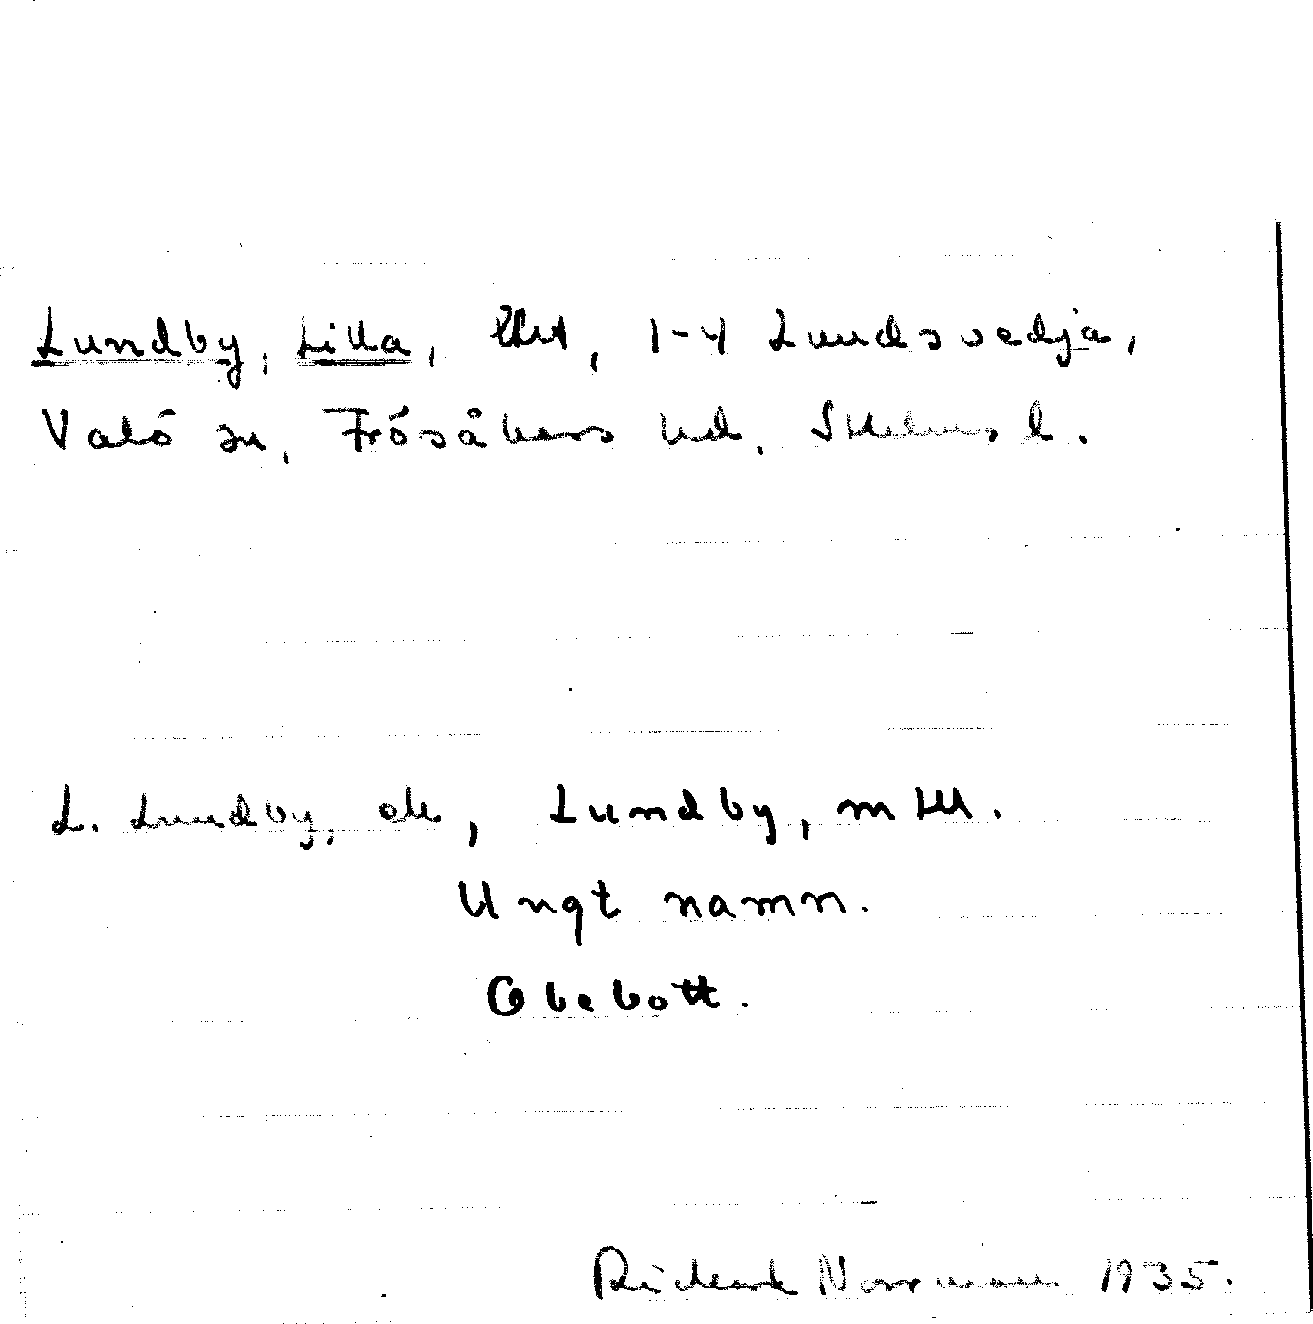 Lundby, Lilla, lht, 1-4 Lundsvedja,
Valö sn, Frösåkers hd, Sthlms l.
L. Lundby, ek, Lundby, mtbl.
Ungt namn.
Obebott.
Rickard Norrman 1935.